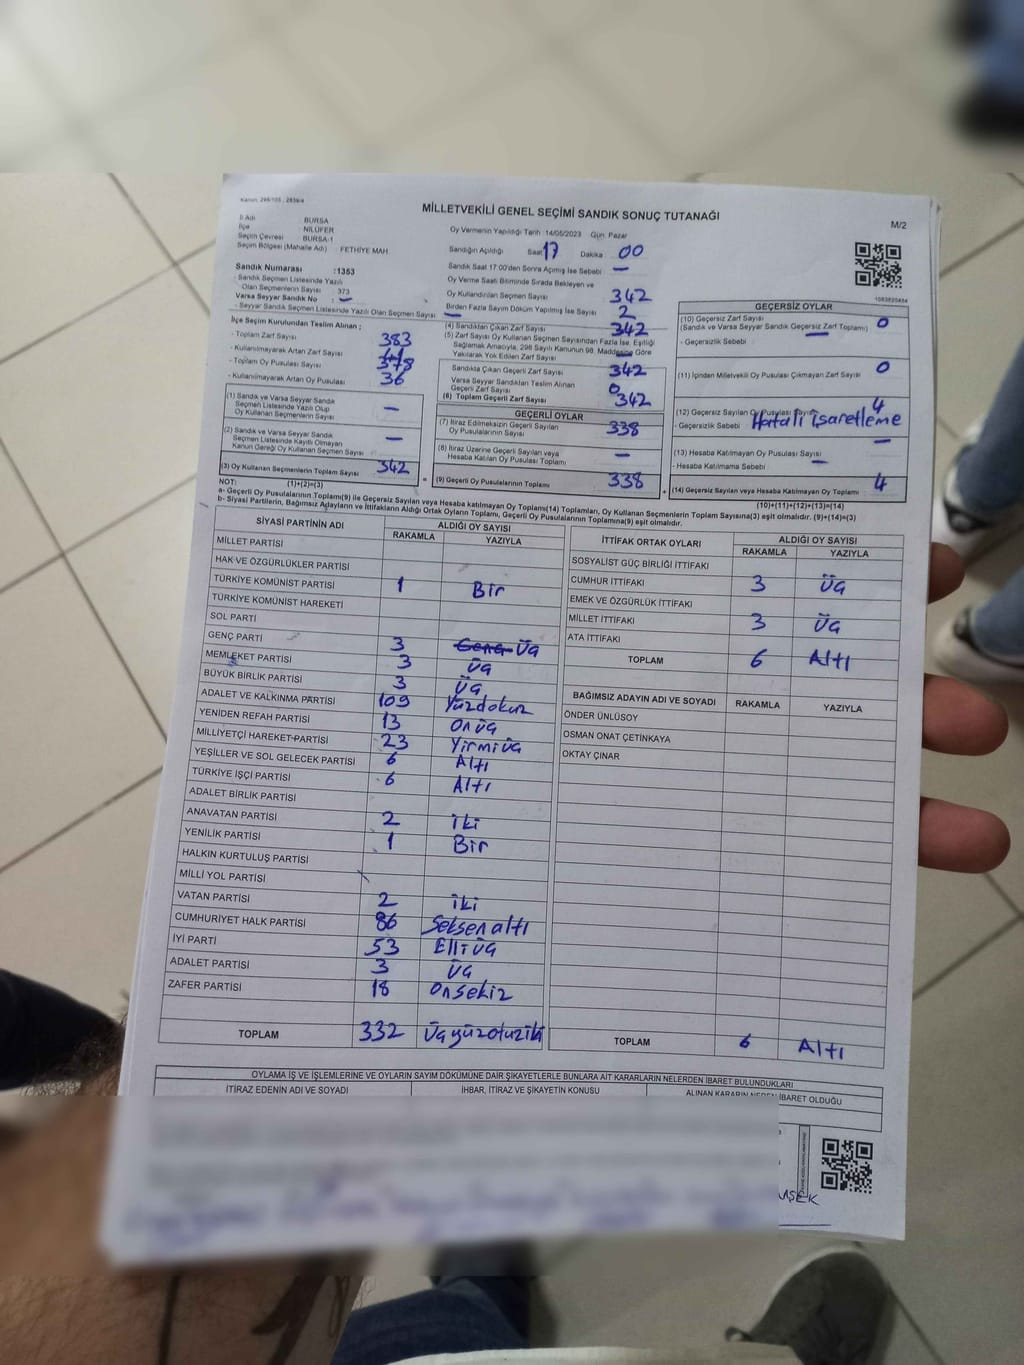 Kanun, 298/105 , 2839/4
MİLLETVEKİLİ GENEL SEÇİMİ SANDIK SONUÇ TUTANAĞI
M/2
İl Adı : BURSA
İlçe : NİLÜFER
Seçim Çevresi : BURSA-1
Seçim Bölgesi (Mahalle Adı) : FETHİYE MAH
Oy Vermenin Yapıldığı Tarih :14/05/2023 Gün: Pazar
Sandığın Açıldığı Saat 17 Dakika 00
Sandık Saat 17:00'den Sonra Açılmış İse Sebebi : —
Sandık Numarası :1353
- Sandık Seçmen Listesinde Yazılı
Olan Seçmenlerin Sayısı : 373
Varsa Seyyar Sandık No : —
- Seyyar Sandık Seçmen Listesinde Yazılı Olan Seçmen Sayısı : —
Oy Verme Saati Bitiminde Sırada Bekleyen ve
Oy Kullandırılan Seçmen Sayısı : 342
Birden Fazla Sayım Döküm Yapılmış İse Sayısı : 2
İlçe Seçim Kurulundan Teslim Alınan ;
- Toplam Zarf Sayısı : 383
- Kullanılmayarak Artan Zarf Sayısı : 41
- Toplam Oy Pusulası Sayısı : 378
- Kullanılmayarak Artan Oy Pusulası : 36
(4) Sandıktan Çıkan Zarf Sayısı : 342
(5) Zarf Sayısı Oy Kullanan Seçmen Sayısından Fazla İse, Eşitliği
Sağlamak Amacıyla, 298 Sayılı Kanunun 98. Maddesine Göre
Yakılarak Yok Edilen Zarf Sayısı : —
Sandıkta Çıkan Geçerli Zarf Sayısı : 342
Varsa Seyyar Sandıktan Teslim Alınan
Geçerli Zarf Sayısı : 0
(6) Toplam Geçerli Zarf Sayısı : 342
(1) Sandık ve Varsa Seyyar Sandık
Seçmen Listesinde Yazılı Olup
Oy Kullanan Seçmenlerin Sayısı : —
(2) Sandık ve Varsa Seyyar Sandık
Seçmen Listesinde Kayıtlı Olmayan
Kanun Gereği Oy Kullanan Seçmen Sayısı : —
(3) Oy Kullanan Seçmenlerin Toplam Sayısı : 342
(1)+(2)=(3)
GEÇERLİ OYLAR
(7) İtiraz Edilmeksizin Geçerli Sayılan
Oy Pusulalarının Sayısı : 338
(8) İtiraz Üzerine Geçerli Sayılan veya
Hesaba Katılan Oy Pusulası Toplamı : —
(9) Geçerli Oy Pusulalarının Toplamı : 338
1083820454
GEÇERSİZ OYLAR
(10) Geçersiz Zarf Sayısı : 0
(Sandık ve Varsa Seyyar Sandık Geçersiz Zarf Toplamı)
- Geçersizlik Sebebi : —
(11) İçinden Milletvekili Oy Pusulası Çıkmayan Zarf Sayısı : 0
(12) Geçersiz Sayılan Oy Pusulası Sayısı : 4
- Geçersizlik Sebebi : Hatalı işaretleme
(13) Hesaba Katılmayan Oy Pusulası Sayısı : —
- Hesaba Katılmama Sebebi : —
(14) Geçersiz Sayılan veya Hesaba Katılmayan Oy Toplamı : 4
(10)+(11)+(12)+(13)=(14)
NOT:
a- Geçerli Oy Pusulalarının Toplamı(9) ile Geçersiz Sayılan veya Hesaba katılmayan Oy Toplamı(14) Toplamları, Oy Kullanan Seçmenlerin Toplam Sayısına(3) eşit olmalıdır. (9)+(14)=(3)
b- Siyasi Partilerin, Bağımsız Adayların ve İttifakların Aldığı Ortak Oyların Toplamı, Geçerli Oy Pusulalarının Toplamına(9) eşit olmalıdır.
SİYASİ PARTİNİN ADI ALDIĞI OY SAYISI
RAKAMLA YAZIYLA
MİLLET PARTİSİ
HAK VE ÖZGÜRLÜKLER PARTİSİ
TÜRKİYE KOMÜNİST PARTİSİ 1 Bir
TÜRKİYE KOMÜNİST HAREKETİ
SOL PARTİ
GENÇ PARTİ 3 Üç
MEMLEKET PARTİSİ 3 Üç
BÜYÜK BİRLİK PARTİSİ 3 Üç
ADALET VE KALKINMA PARTİSİ 109 Yüzdokuz
YENİDEN REFAH PARTİSİ 13 Onüç
MİLLİYETÇİ HAREKET PARTİSİ 23 Yirmiüç
YEŞİLLER VE SOL GELECEK PARTİSİ 6 Altı
TÜRKİYE İŞÇİ PARTİSİ 6 Altı
ADALET BİRLİK PARTİSİ
ANAVATAN PARTİSİ 2 iki
YENİLİK PARTİSİ 1 Bir
HALKIN KURTULUŞ PARTİSİ
MİLLİ YOL PARTİSİ
VATAN PARTİSİ 2 iki
CUMHURİYET HALK PARTİSİ 86 Seksenaltı
İYİ PARTİ 53 Elliüç
ADALET PARTİSİ 3 Üç
ZAFER PARTİSİ 18 Onsekiz
TOPLAM 332 Üçyüzotuziki
İTTİFAK ORTAK OYLARI ALDIĞI OY SAYISI
RAKAMLA YAZIYLA
SOSYALİST GÜÇ BİRLİĞİ İTTİFAKI
CUMHUR İTTİFAKI 3 Üç
EMEK VE ÖZGÜRLÜK İTTİFAKI
MİLLET İTTİFAKI 3 Üç
ATA İTTİFAKI
TOPLAM 6 Altı
BAĞIMSIZ ADAYIN ADI VE SOYADI RAKAMLA YAZIYLA
ÖNDER ÜNLÜSOY
OSMAN ONAT ÇETİNKAYA
OKTAY ÇINAR
TOPLAM 6 Altı
OYLAMA İŞ VE İŞLEMLERİNE VE OYLARIN SAYIM DÖKÜMÜNE DAİR ŞİKAYETLERLE BUNLARA AİT KARARLARIN NELERDEN İBARET BULUNDUKLARI
İTİRAZ EDENİN ADI VE SOYADI İHBAR, İTİRAZ VE ŞİKAYETİN KONUSU ALINAN KARARIN NEDEN İBARET OLDUĞU